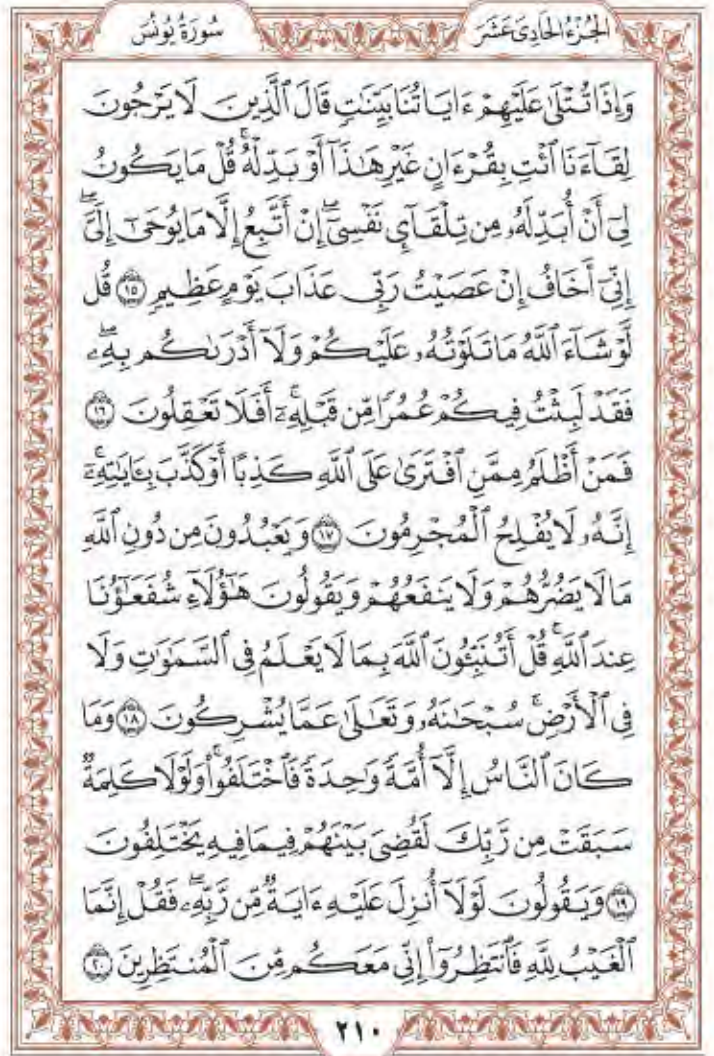 الجُزْءُ الحَادِي عَشَرَ
سُورَةُ يُونُسَ
وَإِذَا تُتْلَىٰ عَلَيْهِمْ ءَايَاتُنَا بَيِّنَـٰتٍ قَالَ ٱلَّذِينَ لَا يَرْجُونَ
لِقَآءَنَا ٱئْتِ بِقُرْءَانٍ غَيْرِ هَـٰذَآ أَوْ بَدِّلْهُ ۚ قُلْ مَا يَكُونُ
لِىٓ أَنْ أُبَدِّلَهُۥ مِن تِلْقَآئِ نَفْسِىٓ ۖ إِنْ أَتَّبِعُ إِلَّا مَا يُوحَىٰٓ إِلَىَّ ۖ
إِنِّىٓ أَخَافُ إِنْ عَصَيْتُ رَبِّى عَذَابَ يَوْمٍ عَظِيمٍ ١٥ قُل
لَّوْ شَآءَ ٱللَّهُ مَا تَلَوْتُهُۥ عَلَيْكُمْ وَلَآ أَدْرَىٰكُم بِهِۦ ۖ
فَقَدْ لَبِثْتُ فِيكُمْ عُمُرًا مِّن قَبْلِهِۦٓ ۚ أَفَلَا تَعْقِلُونَ ١٦
فَمَنْ أَظْلَمُ مِمَّنِ ٱفْتَرَىٰ عَلَى ٱللَّهِ كَذِبًا أَوْ كَذَّبَ بِـَٔايَـٰتِهِۦٓ ۚ
إِنَّهُۥ لَا يُفْلِحُ ٱلْمُجْرِمُونَ ١٧ وَيَعْبُدُونَ مِن دُونِ ٱللَّهِ
مَا لَا يَضُرُّهُمْ وَلَا يَنفَعُهُمْ وَيَقُولُونَ هَـٰٓؤُلَآءِ شُفَعَـٰٓؤُنَا
عِندَ ٱللَّهِ ۚ قُلْ أَتُنَبِّـُٔونَ ٱللَّهَ بِمَا لَا يَعْلَمُ فِى ٱلسَّمَـٰوَٰتِ وَلَا
فِى ٱلْأَرْضِ ۚ سُبْحَـٰنَهُۥ وَتَعَـٰلَىٰ عَمَّا يُشْرِكُونَ ١٨ وَمَا
كَانَ ٱلنَّاسُ إِلَّآ أُمَّةً وَٰحِدَةً فَٱخْتَلَفُوا۟ ۚ وَلَوْلَا كَلِمَةٌ
سَبَقَتْ مِن رَّبِّكَ لَقُضِىَ بَيْنَهُمْ فِيمَا فِيهِ يَخْتَلِفُونَ
١٩ وَيَقُولُونَ لَوْلَآ أُنزِلَ عَلَيْهِ ءَايَةٌ مِّن رَّبِّهِۦ ۖ فَقُلْ إِنَّمَا
ٱلْغَيْبُ لِلَّهِ فَٱنتَظِرُوٓا۟ إِنِّى مَعَكُم مِّنَ ٱلْمُنتَظِرِينَ ٢٠
٢١٠